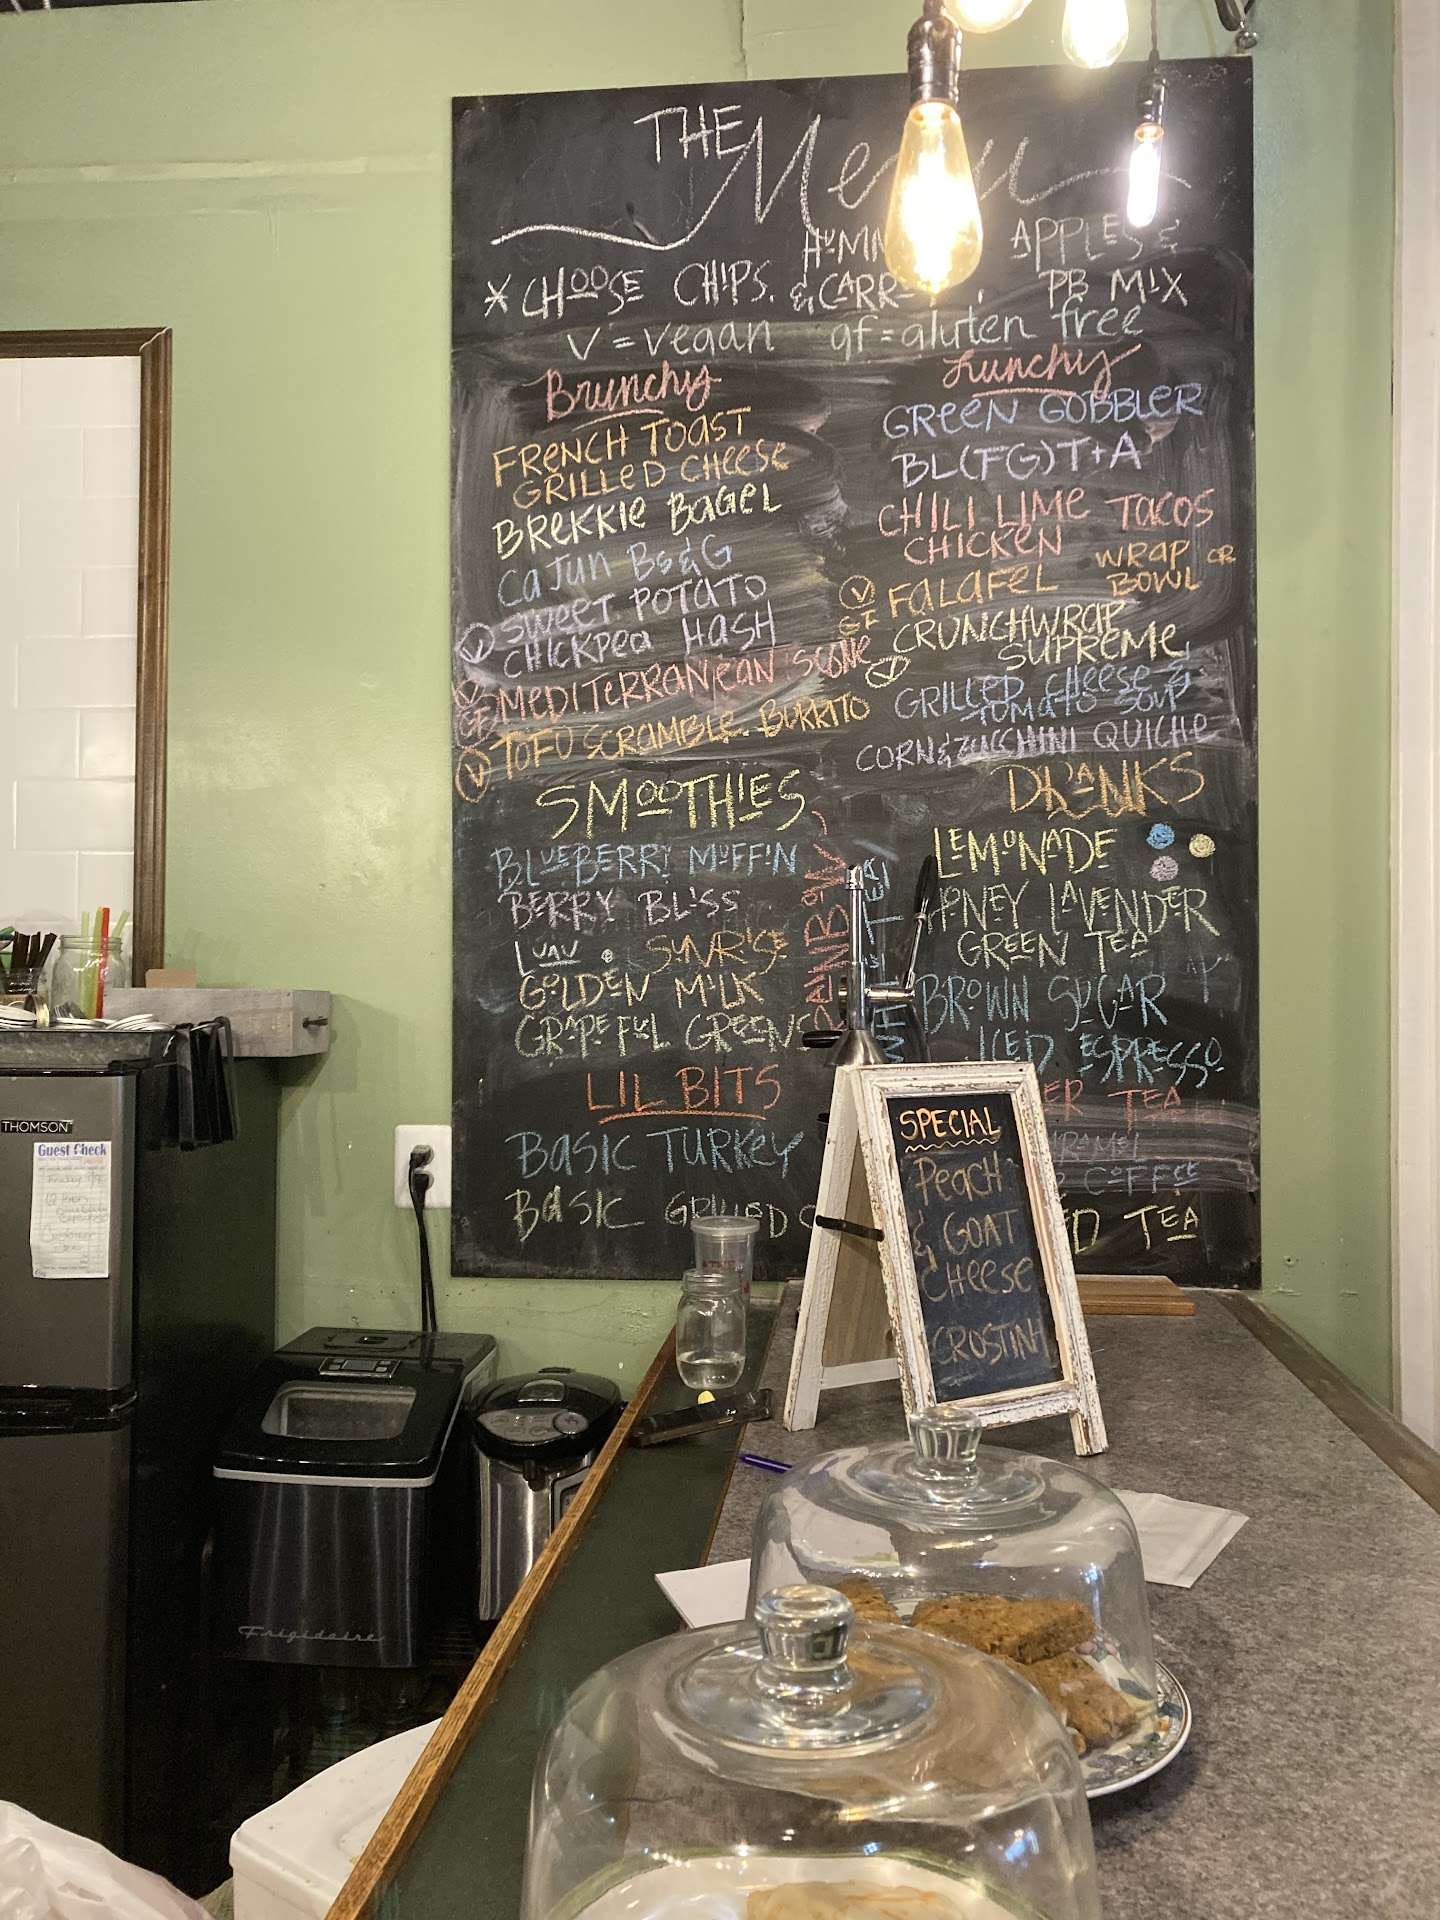 THE Menu
APPLES &
* CHOOSE CHIPS, & PB MIX
V = vegan gf = gluten free
Brunchy
FRENCH TOAST
GRILLED CHEESE
BREKKIE BAGEL
CAJUN Bs & G
V SWEET POTATO
CHICKPEA HASH
MEDITERRANEAN SCONE
V TOFU SCRAMBLE BURRITO
Lunchy
GREEN GOBBLER
BL(FG)T+A
CHILI LIME TACOS
CHICKEN
V GF FALAFEL WRAP OR BOWL
CRUNCHWRAP
V SUPREME
GRILLED CHEESE &
TOMATO SOUP
CORN & ZUCCHINI QUICHE
SMOOTHIES
BLUEBERRY MUFFIN
BERRY BLISS
SUNRISE
GOLDEN MILK
GRAPEFUL GREENS
RAINBOW
TEA
LIL BITS
BASIC TURKEY
BASIC GRILLED
DRANKS
LEMONADE
HONEY LAVENDER
GREEN TEA
BROWN SUGAR
ICED ESPRESSO
TEA
COFFEE
TEA
SPECIAL
PEACH
& GOAT
CHEESE
CROSTINI
THOMSON
Guest Check
Frigidaire